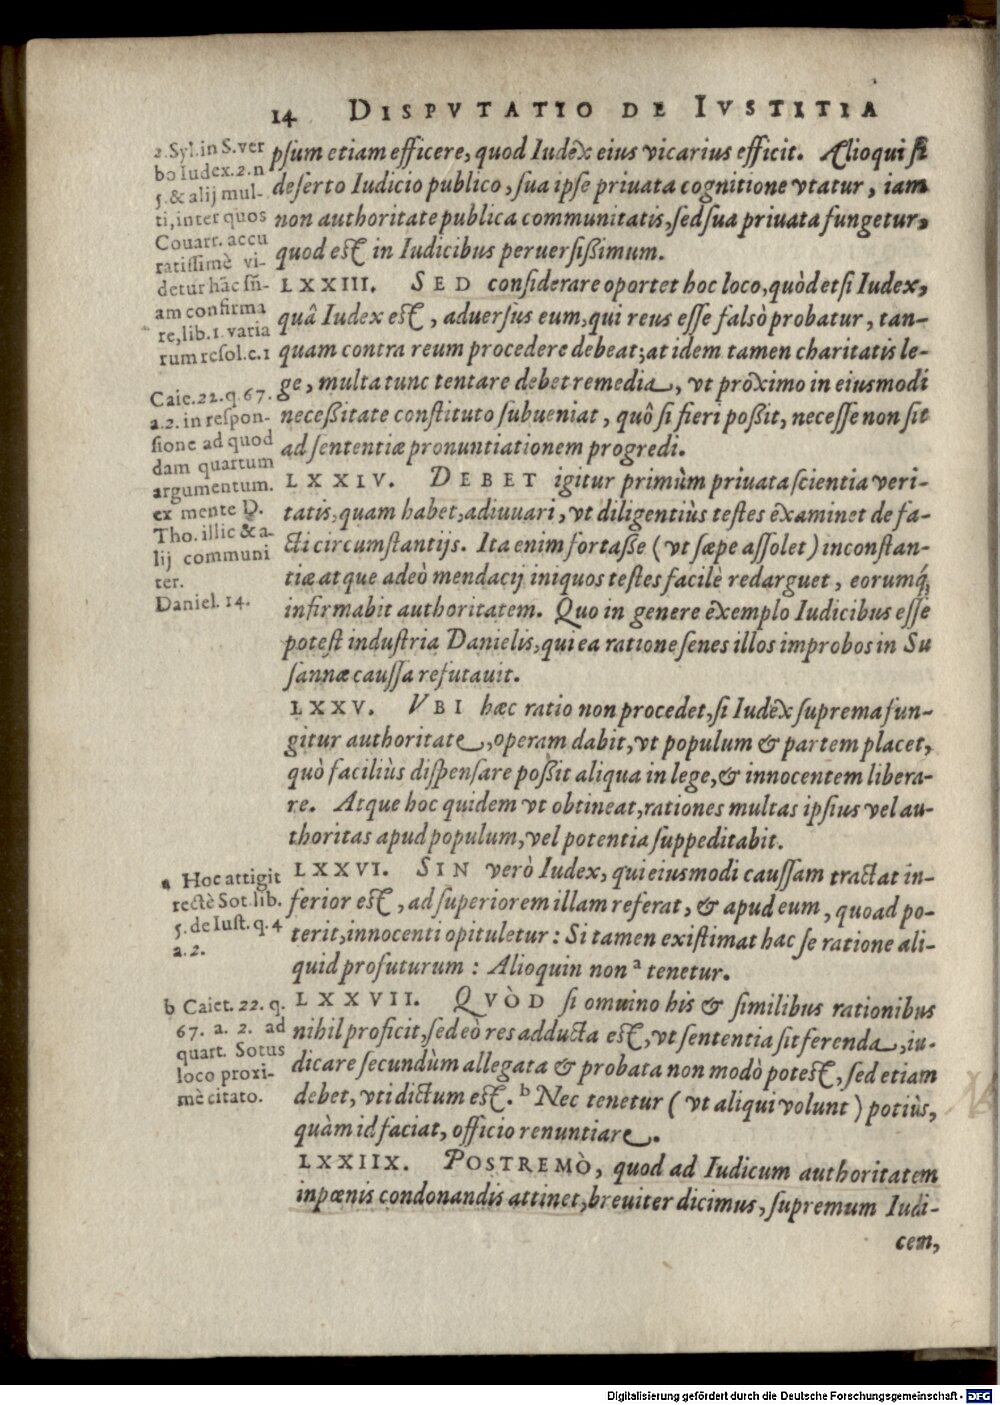 14 DISPVTATIO DE IVSTITIA
2. Syl. in S. ver
bo Iudex. 2. n
5. & alij mul-
ti, inter quos
Couarr. accu
ratissimè vi-
detur hāc sñ-
am confirma
re, lib. 1. varia
rum resol. c. 1
Caie. 22. q. 67.
a. 2. in respon-
sione ad quod
dam quartum
argumentum.
ex mente D.
Tho. illic & a-
lij communi
ter.
Daniel. 14.
psum etiam efficere, quod Iudex eius vicarius efficit. Alioqui si
deserto Iudicio publico, sua ipse priuata cognitione vtatur, iam
non authoritate publica communitatis, sed sua priuata fungetur,
quod est in Iudicibus peruersißimum.
LXXIII. SED considerare oportet hoc loco, quòd etsi Iudex,
quâ Iudex est, aduersus eum, qui reus esse falsò probatur, tan-
quam contra reum procedere debeat; at idem tamen charitatis le-
ge, multa tunc tentare debet remedia, vt proximo in eiusmodi
neceßitate constituto subueniat, quô si fieri poßit, necesse non sit
ad sententiæ pronuntiationem progredi.
LXXIV. DEBET igitur primùm priuata scientia veri-
tatis, quam habet, adiuuari, vt diligentiùs testes examinet de fa-
cti circumstantijs. Ita enim fortaße (vt sæpe assolet) inconstan-
tiæ atque adeò mendacij iniquos testes facilè redarguet, eorumq́;
infirmabit authoritatem. Quo in genere exemplo Iudicibus esse
potest industria Danielis, qui ea ratione senes illos improbos in Su
sannæ caussa refutauit.
LXXV. VBI hæc ratio non procedet, si Iudex suprema fun-
gitur authoritate, operam dabit, vt populum & partem placet,
quò faciliùs dispensare poßit aliqua in lege, & innocentem libera-
re. Atque hoc quidem vt obtineat, rationes multas ipsius vel au-
thoritas apud populum, vel potentia suppeditabit.
a Hoc attigit
rectè Sot. lib.
5. de Iust. q. 4
a. 2.
LXXVI. SIN verò Iudex, qui eiusmodi caussam tractat in-
ferior est, ad superiorem illam referat, & apud eum, quoad po-
terit, innocenti opituletur: Si tamen existimat hac se ratione ali-
quid profuturum: Alioquin non a tenetur.
b Caiet. 22. q.
67. a. 2. ad
quart. Sotus
loco proxi-
mè citato.
LXXVII. QVÒD si omuino his & similibus rationibus
nihil proficit, sed eò res adducta est, vt sententia sit ferenda, iu-
dicare secundùm allegata & probata non modò potest, sed etiam
debet, vti dictum est. b Nec tenetur (vt aliqui volunt) potiùs,
quàm id faciat, officio renuntiare.
LXXIIX. POSTREMÒ, quod ad Iudicum authoritatem
in pœnis condonandis attinet, breuiter dicimus, supremum Iudi-
cem,
Digitalisierung gefördert durch die Deutsche Forschungsgemeinschaft - DFG